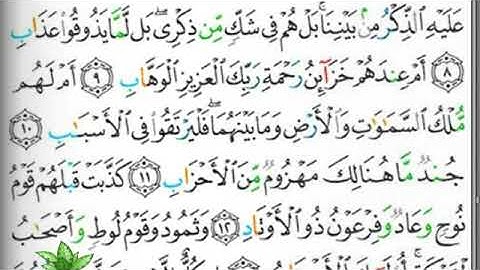 عَلَيْهِ ٱلذِّكْرُ مِنۢ بَيْنِنَا ۚ بَلْ هُمْ فِى شَكٍّ مِّن ذِكْرِى ۖ بَل لَّمَّا يَذُوقُوا۟ عَذَابِ
٨ أَمْ عِندَهُمْ خَزَآئِنُ رَحْمَةِ رَبِّكَ ٱلْعَزِيزِ ٱلْوَهَّابِ ٩ أَمْ لَهُم
مُّلْكُ ٱلسَّمَٰوَٰتِ وَٱلْأَرْضِ وَمَا بَيْنَهُمَا ۖ فَلْيَرْتَقُوا۟ فِى ٱلْأَسْبَٰبِ ١٠
جُندٌ مَّا هُنَالِكَ مَهْزُومٌ مِّنَ ٱلْأَحْزَابِ ١١ كَذَّبَتْ قَبْلَهُمْ قَوْمُ
نُوحٍ وَعَادٌ وَفِرْعَوْنُ ذُو ٱلْأَوْتَادِ ١٢ وَثَمُودُ وَقَوْمُ لُوطٍ وَأَصْحَٰبُ